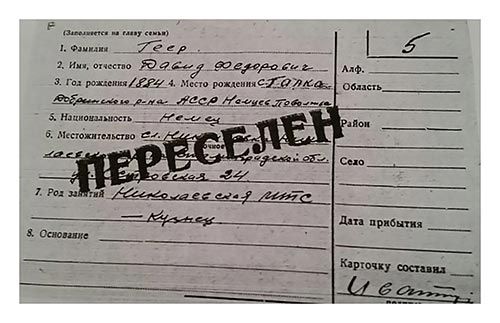 (Заполняется на главу семьи)
1. Фамилия Геер.
2. Имя, отчество Давид Федорович
3. Год рождения 1884 4. Место рождения
Добринского р-на АССР Немцев Поволжья
5. Национальность Немец
6. Местожительство сл.
24
7. Род занятий Николаевская мтс
— Кузнец
8. Основание
ПЕРЕСЕЛЕН
5
Алф.
Область
Район
Село
Дата прибытия
Карточку составил